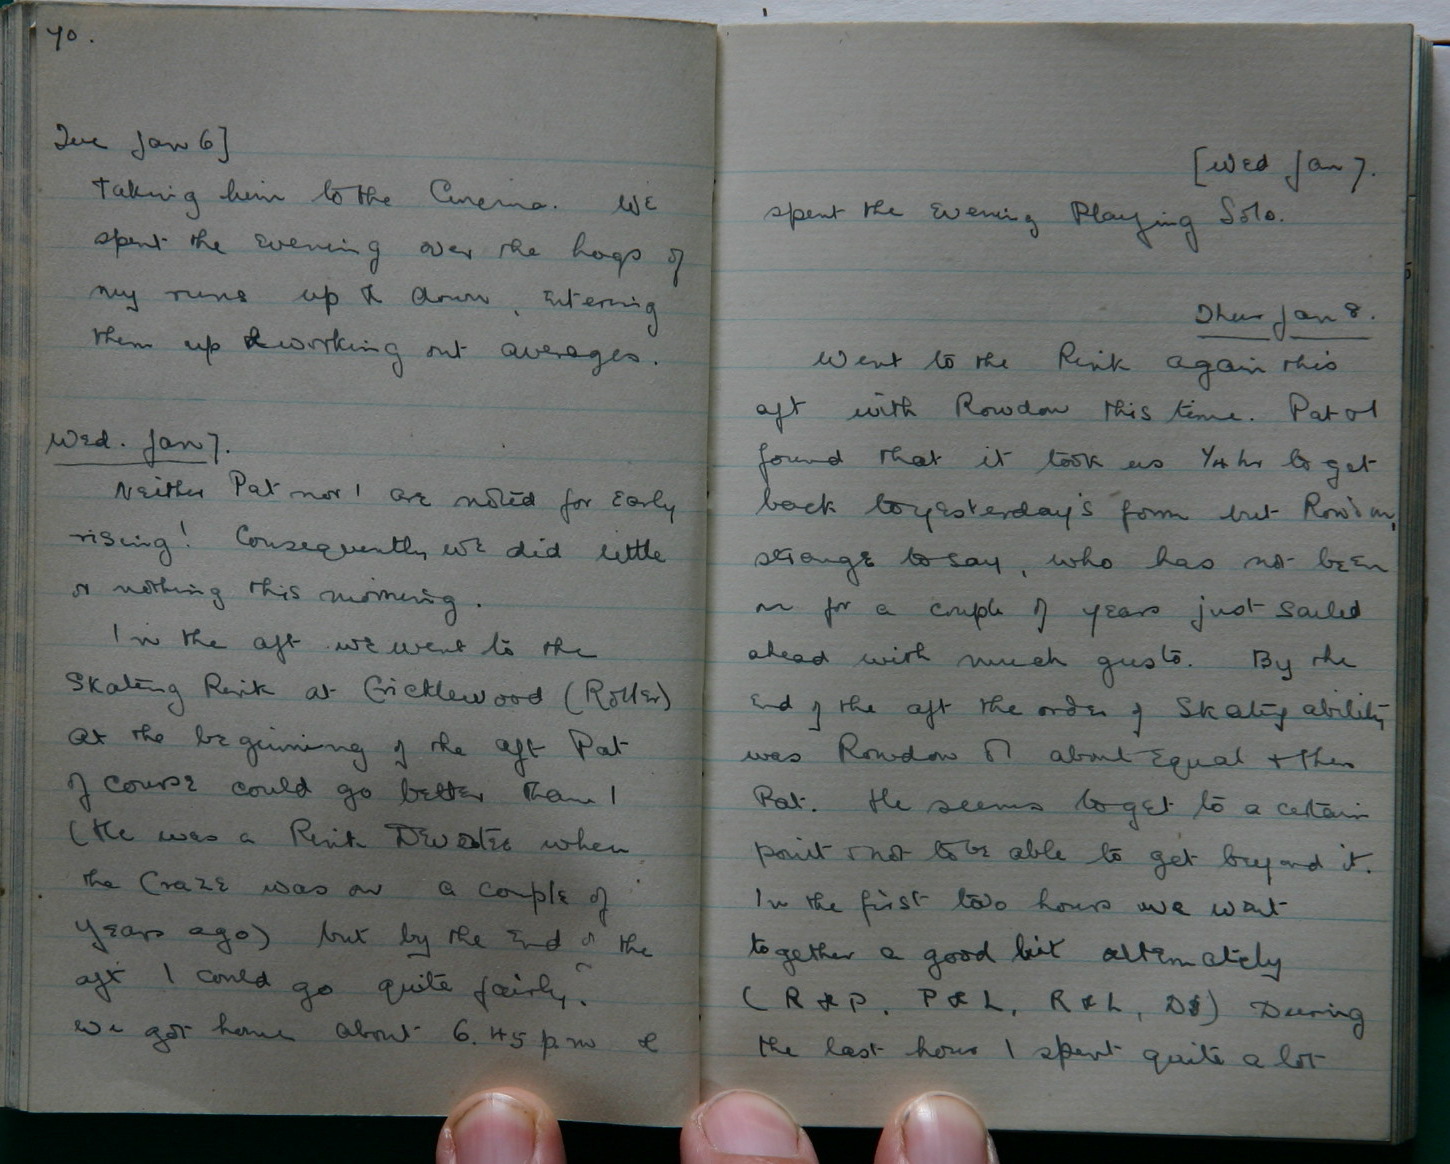 40.
Tue Jan 6]
taking him to the Cinema. We
spent the evening over the logs of
my runs up & down, entering
them up & working out averages.
Wed. Jan 7.
Neither Pat nor I are noted for early
rising! Consequently we did little
or nothing this morning.
In the aft we went to the
Skating Rink at Cricklewood (Roller)
At the beginning of the aft Pat
of course could go better than I
(He was a Rink Devotee when
the Craze was on a couple of
years ago) but by the end of the
aft I could go quite fairly.
We got home about 6.45 pm &
[Wed Jan 7.
spent the evening Playing Solo.
Thur Jan 8.
Went to the Rink again this
aft with Rowdon this time. Pat & I
found that it took us 1/4 hr to get
back to yesterday's form but
strange to say, who has not been
on for a couple of years just sailed
ahead with much gusto. By the
end of the aft the order of Skating ability
was Rowdon about equal & then
Pat. He seems to get to a certain
point & not to be able to get beyond it.
In the first two hours we went
together a good bit alternately
(R & P, P & L, R & L,) During
the last hour I spent quite a lot